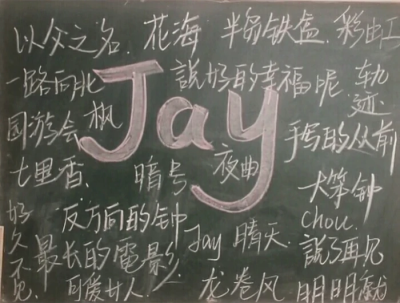 以父之名. 花海 半岛铁盒. 彩虹
一路向北 說好的幸福呢. 轨迹
Jay
园游会 枫 手写的从前
七里香. 暗号 夜曲 大笨钟
好久不见 反方向的钟 Chou.
最长的電影 Jay 晴天. 說了再见
可爱女人. 龙卷风. 明明就